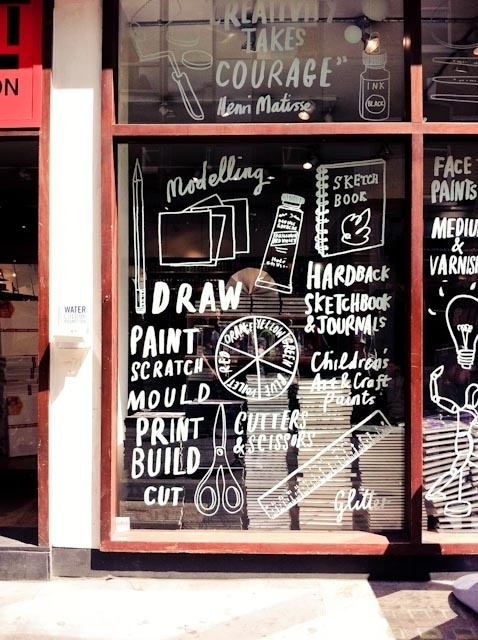 "CREATIVITY
TAKES
COURAGE"
Henri Matisse
INK
BLACK
ON
Modelling
SKETCH
BOOK
FACE
PAINTS
MEDIU
&
VARNISH
HARDBACK
SKETCHBOOK
& JOURNALS
DRAW
PAINT
SCRATCH
MOULD
PRINT
BUILD
CUT
RED ORANGE YELLOW GREEN BLUE VIOLET
Children's
Art & Craft
Paints
CUTTERS
& SCISSORS
Glitter
WATER